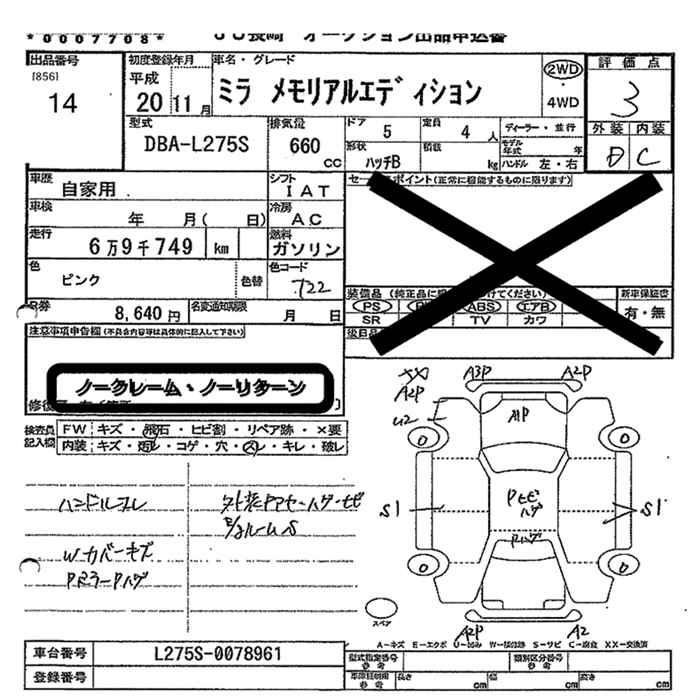 *0007708*
JU長崎 オークション出品申込書
出品番号 初度登録年月 車名・グレード 評価点
[856]
14
平成 20 11月
ミラ メモリアルエディション
2WD
・
4WD
3
型式 排気量 ドア 定員 ディーラー・並行 外装 内装
DBA-L275S 660 CC 5 4人 モデル年式 年 D C
形状 積載
ハッチB kg ハンドル 左・右
車歴 自家用 シフト IAT
セールスポイント(正常に稼働するものに限ります)
車検 年 月( 日) 冷房 AC
走行 6万9千749 km 燃料 ガソリン
色 ピンク 色替 色コード T22
装備品 新車保証書
PS ABS エアB 有・無
SR TV カワ
R券 8,640円 名変通知期限 月 日
注意事項申告欄(不具合内容等は具体的に記入して下さい)
ノークレーム・ノーリターン
検査員記入欄 FW キズ・飛石・ヒビ割・リペア跡・×要
内装 キズ・汚レ・コゲ・穴・スレ・キレ・破レ
XX A3P A2P
A2P
U2
A1P
ハンドルスレ
Wカバーキズ
PミラーPハゲ
S1 S1
Pハゲ
スペア
A2P A2
A-キズ E-エクボ U-凹み W-補修跡 S-サビ C-腐食 XX-交換済
車台番号 L275S-0078961
登録番号
型式指定番号 参考 類別区分番号 参考
車庫証明用 参考 長さ cm 幅 cm 高さ cm